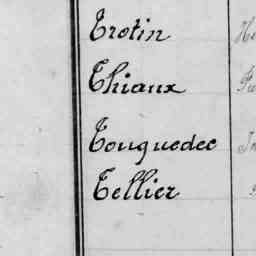 Trotin
Thiaux
Touquedec
Tellier